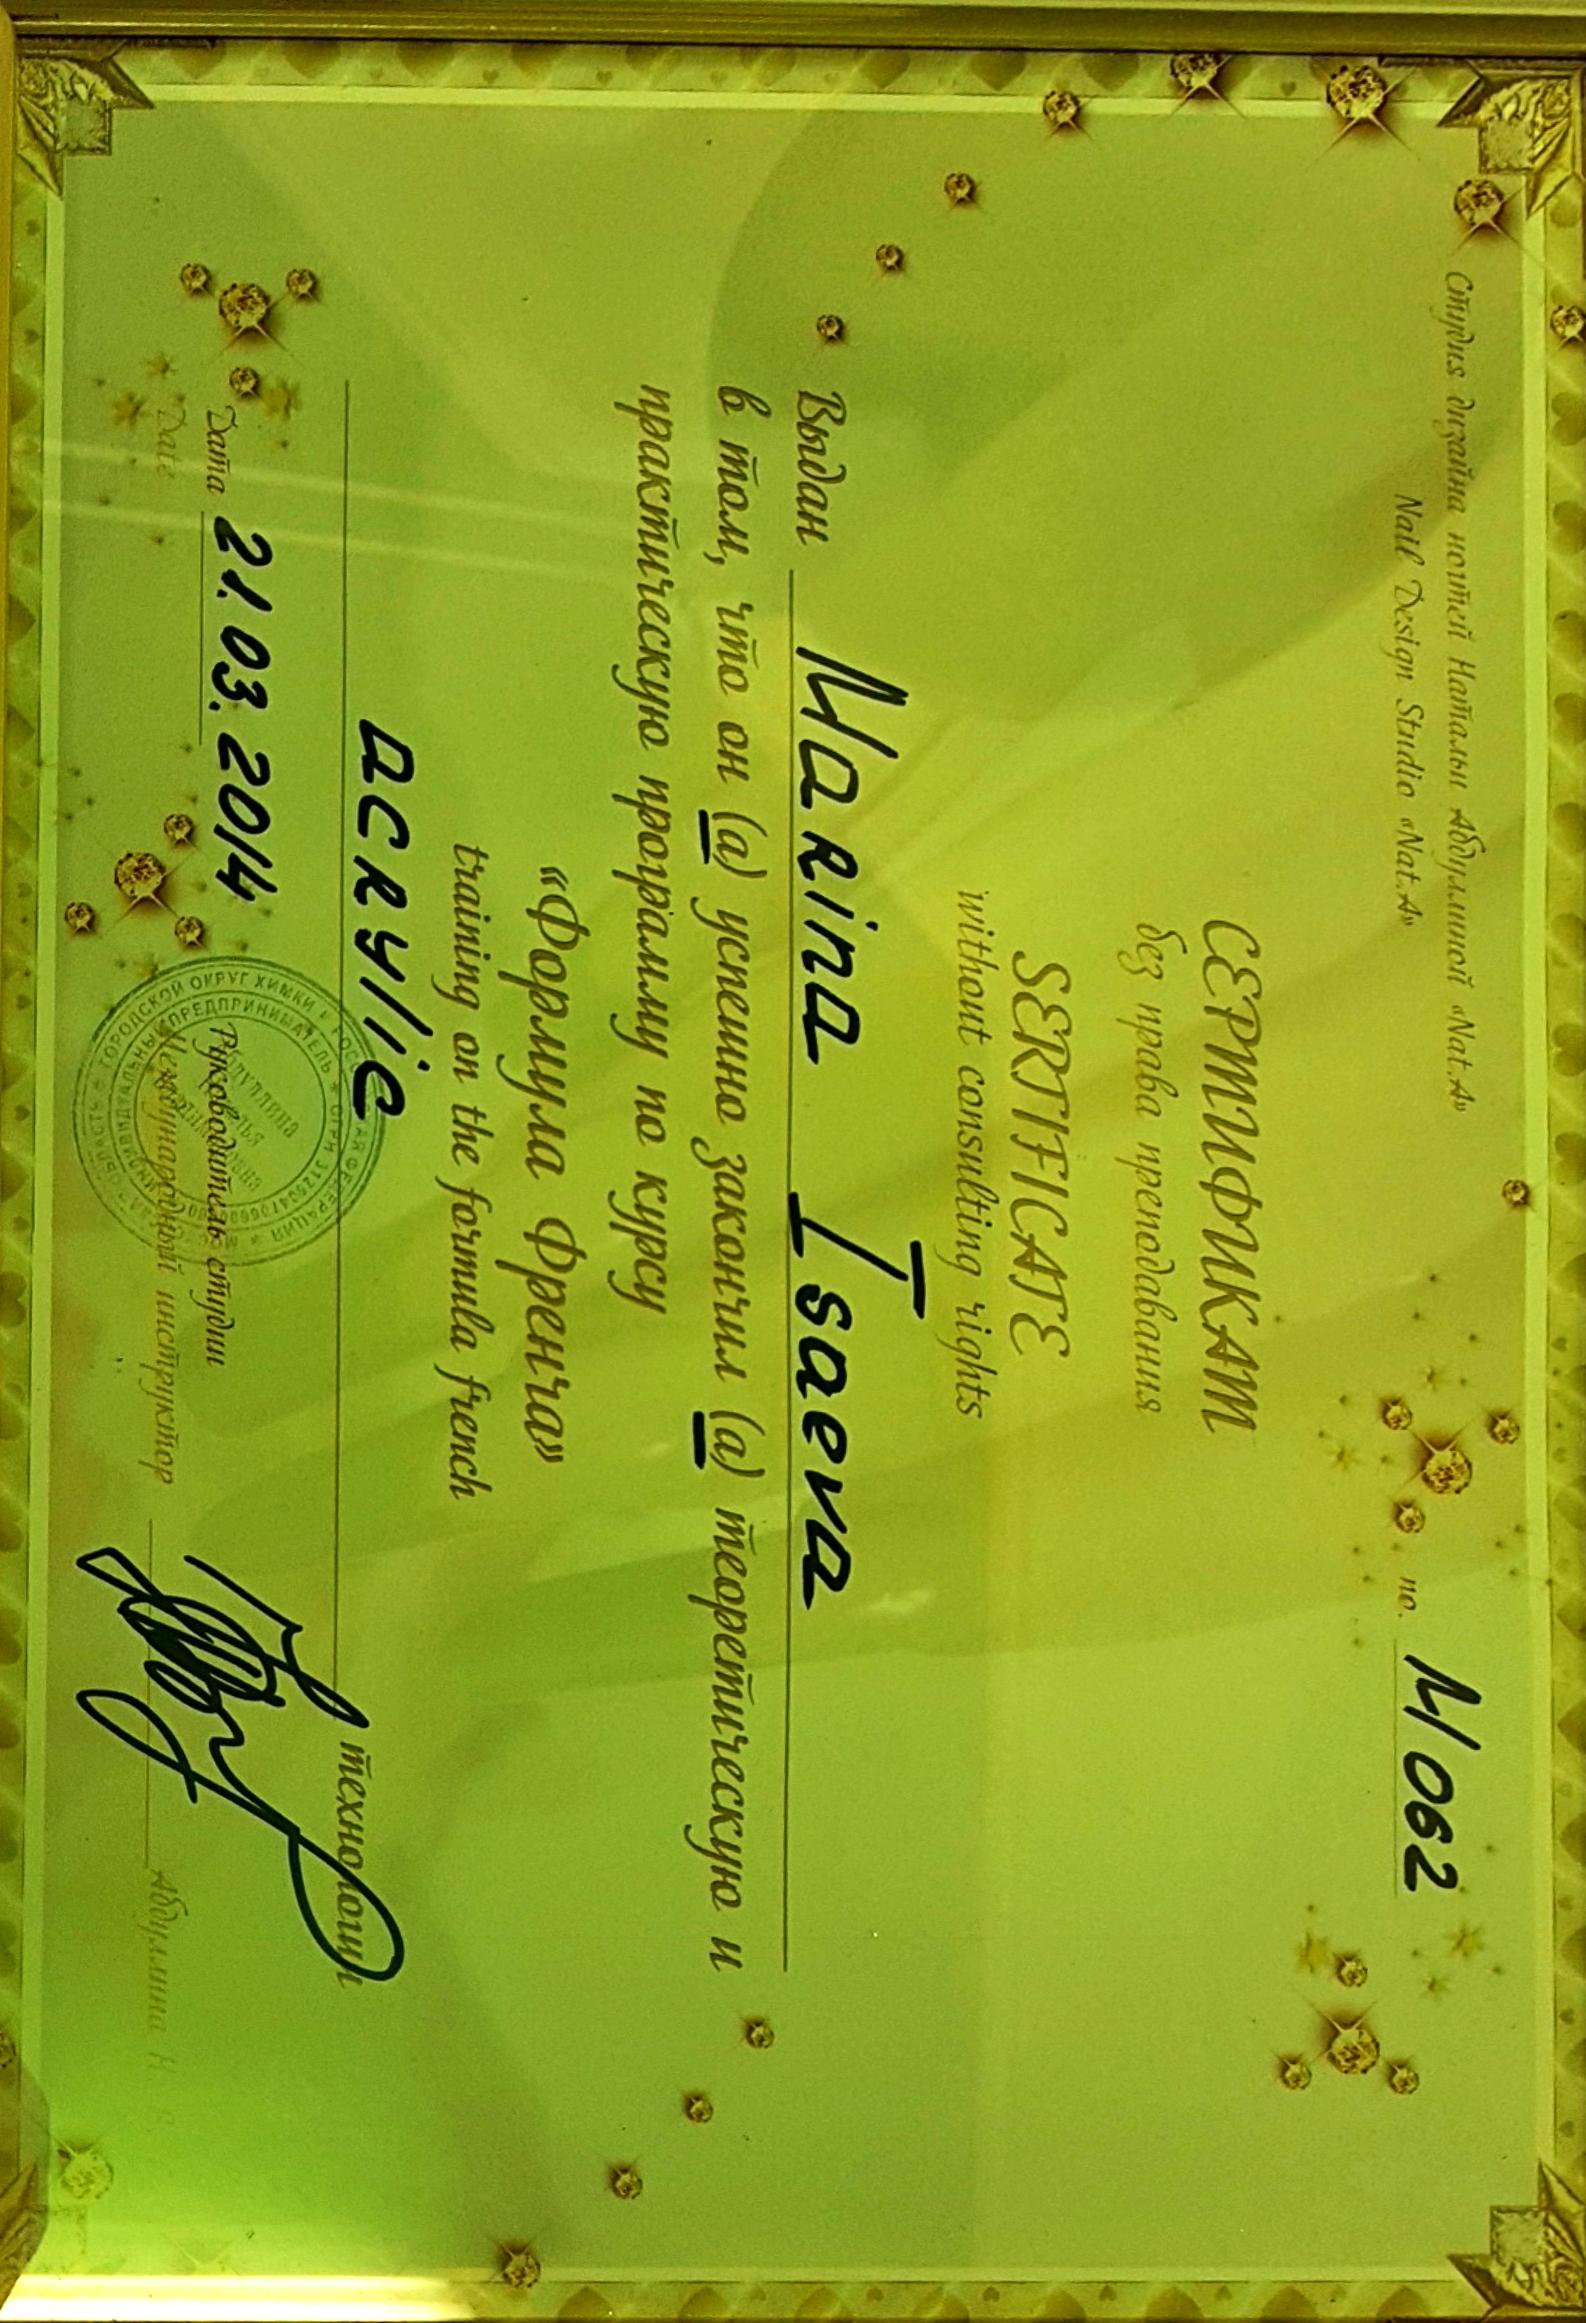 Студия дизайна ногтей Натальи Абдуллиной «Nat.A»
Nail Design Studio «Nat.A»
no. М062
СЕРТИФИКАТ
без права преподавания
SERTIFICATE
without consulting rights
Выдан Marina Isaeva
в том, что он (а) успешно закончил (а) теоретическую и
практическую программу по курсу
«Формула Френча»
training on the formula french
acrylic технологии
Дата 21.03.2014
Date
Руководитель студии
Международный инструктор Абдуллина Н
ГОРОДСКОЙ ОКРУГ ХИМКИ
ИНДИВИДУАЛЬНЫЙ ПРЕДПРИНИМАТЕЛЬ